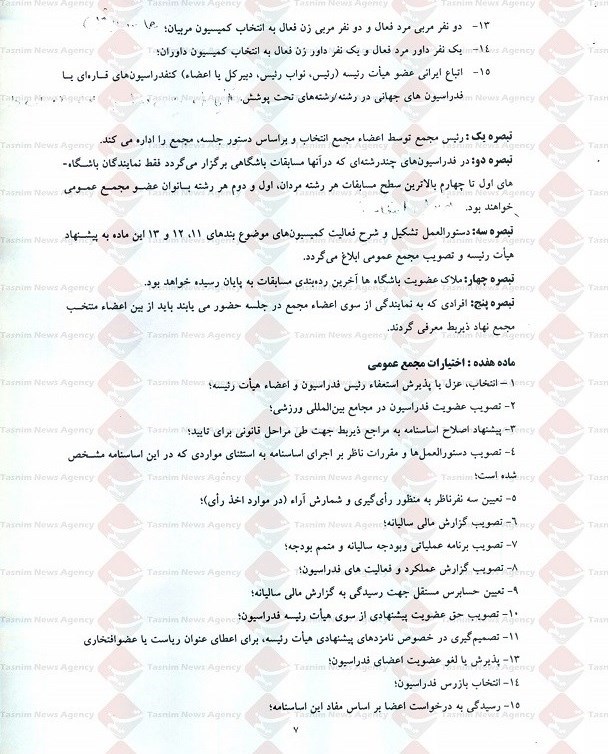 ۱۳- دو نفر مربی مرد فعال و دو نفر مربی زن فعال به انتخاب کمیسیون مربیان؛
۱۴- یک نفر داور مرد فعال و یک نفر داور زن فعال به انتخاب کمیسیون داوران؛
۱۵- اتباع ایرانی عضو هیأت رئیسه (رئیس، نواب رئیس، دبیرکل یا اعضاء) کنفدراسیون‌های قاره‌ای یا
فدراسیون های جهانی در رشته/رشته‌های تحت پوشش.
تبصره یک: رئیس مجمع توسط اعضاء مجمع انتخاب و براساس دستور جلسه، مجمع را اداره می کند.
تبصره دو: در فدراسیون‌های چندرشته‌ای که درآنها مسابقات باشگاهی برگزار می‌گردد فقط نمایندگان باشگاه-
های اول تا چهارم بالاترین سطح مسابقات هر رشته مردان، اول و دوم هر رشته بانوان عضو مجمع عمومی
خواهند بود.
تبصره سه: دستورالعمل تشکیل و شرح فعالیت کمیسیون‌های موضوع بندهای ۱۱، ۱۲ و ۱۳ این ماده به پیشنهاد
هیأت رئیسه و تصویب مجمع عمومی ابلاغ می‌گردد.
تبصره چهار: ملاک عضویت باشگاه ها آخرین رده‌بندی مسابقات به پایان رسیده خواهد بود.
تبصره پنج: افرادی که به نمایندگی از سوی اعضاء مجمع در جلسه حضور می یابند باید از بین اعضاء منتخب
مجمع نهاد ذیربط معرفی گردند.
ماده هفده : اختیارات مجمع عمومی
۱- انتخاب، عزل یا پذیرش استعفاء رئیس فدراسیون و اعضاء هیأت رئیسه؛
۲- تصویب عضویت فدراسیون در مجامع بین‌المللی ورزشی؛
۳- پیشنهاد اصلاح اساسنامه به مراجع ذیربط جهت طی مراحل قانونی برای تایید؛
۴- تصویب دستورالعمل‌ها و مقررات ناظر بر اجرای اساسنامه به استثنای مواردی که در این اساسنامه مشخص
شده است؛
۵- تعیین سه نفرناظر به منظور رأی‌گیری و شمارش آراء (در موارد اخذ رأی)؛
۶- تصویب گزارش مالی سالیانه؛
۷- تصویب برنامه عملیاتی وبودجه سالیانه و متمم بودجه؛
۸- تصویب گزارش عملکرد و فعالیت های فدراسیون؛
۹- تعیین حسابرس مستقل جهت رسیدگی به گزارش مالی سالیانه؛
۱۰- تصویب حق عضویت پیشنهادی از سوی هیأت رئیسه فدراسیون؛
۱۱- تصمیم‌گیری در خصوص نامزدهای پیشنهادی هیأت رئیسه، برای اعطای عنوان ریاست یا عضوافتخاری
۱۳- پذیرش یا لغو عضویت اعضای فدراسیون؛
۱۴- انتخاب بازرس فدراسیون؛
۱۵- رسیدگی به درخواست اعضا بر اساس مفاد این اساسنامه؛
۷
Tasnim News Agency